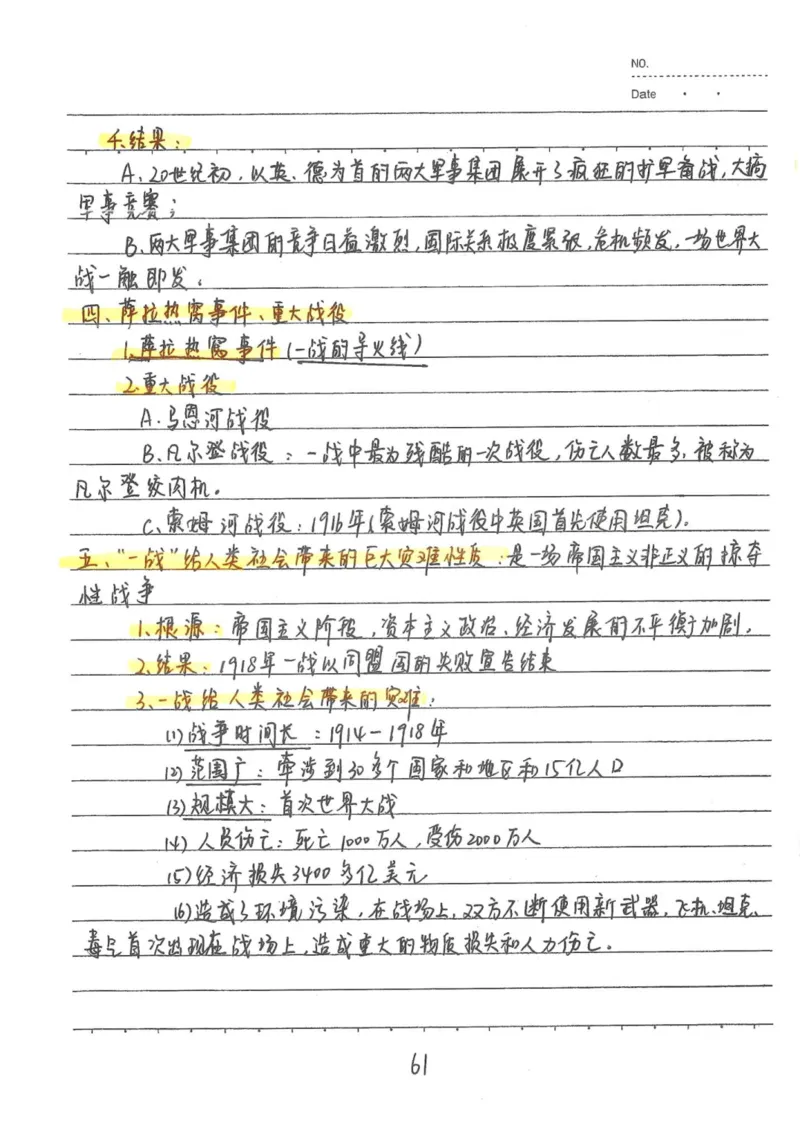 NO.
Date
4.结果：
A、20世纪初，以英、德为首的两大军事集团展开了疯狂的扩军备战，大搞
军事竞赛；
B、两大军事集团的竞争日益激烈，国际关系极度紧张，危机频发，一场世界大
战一触即发。
四、萨拉热窝事件、重大战役
1、萨拉热窝事件（一战的导火线）
2、重大战役
A.马恩河战役
B、凡尔登战役：一战中最为残酷的一次战役，伤亡人数最多，被称为
凡尔登绞肉机。
C、索姆河战役：1916年（索姆河战役中英国首先使用坦克）。
五、“一战”给人类社会带来的巨大灾难性质：是一场帝国主义非正义的掠夺
性战争
1、根源：帝国主义阶段，资本主义政治、经济发展的不平衡加剧。
2、结果：1918年一战以同盟国的失败宣告结束
3、一战给人类社会带来的灾难：
(1)战争时间长：1914-1918年
(2)范围广：牵涉到30多个国家和地区和15亿人口
(3)规模大：首次世界大战
(4)人员伤亡：死亡1000万人，受伤2000万人
(5)经济损失3400多亿美元
(6)造成了环境污染，在战场上，双方不断使用新武器，飞机、坦克、
毒气首次出现在战场上，造成重大的物质损失和人力伤亡。
61